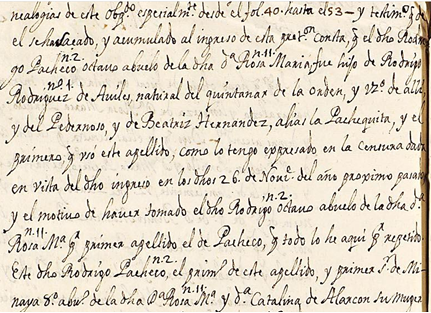 nealogias de este obgᵗᵒ especialmᵗᵉ desde el fol. 40. hasta el 53 — y testimᵒ q̃ de
el se ha sacado, y acumulado al ingreso de esta pretᵒⁿ Consta, q̃ el dho Rodri
n.2.                n.11.
go Pacheco octavo abuelo de la dha Dᵃ Rosa Maria, fue hijo de Rodrigo
n.º 1.
Rodriguez de Aviles, natural del quintanar de la orden, y vzº de alli,
y del Pedernoso, y de Beatriz Hernandez, alias la Pachequita, y el
primero, q̃ usó este apellido, como lo tengo expresado en la Censura dada
en vista del dho ingreso en los dhos 26. de Novᵉ del año proximo pasado
n.2.
y el motivo de haver tomado el dho Rodrigo octavo abuelo de la dha dᵃ
n.11.
Rosa Mᵃ pʳ primer apellido el de Pacheco, q̃ todo lo he aqui pʳ repetido.
n.2.
Este dho Rodrigo Pacheco, el primº de este apellido, y primer Sʳ de Mi
n.11.
naya 8º abuº de la dha Dᵃ Rosa Mᵃ y dᵃ Catalina de Alarcon su Muger